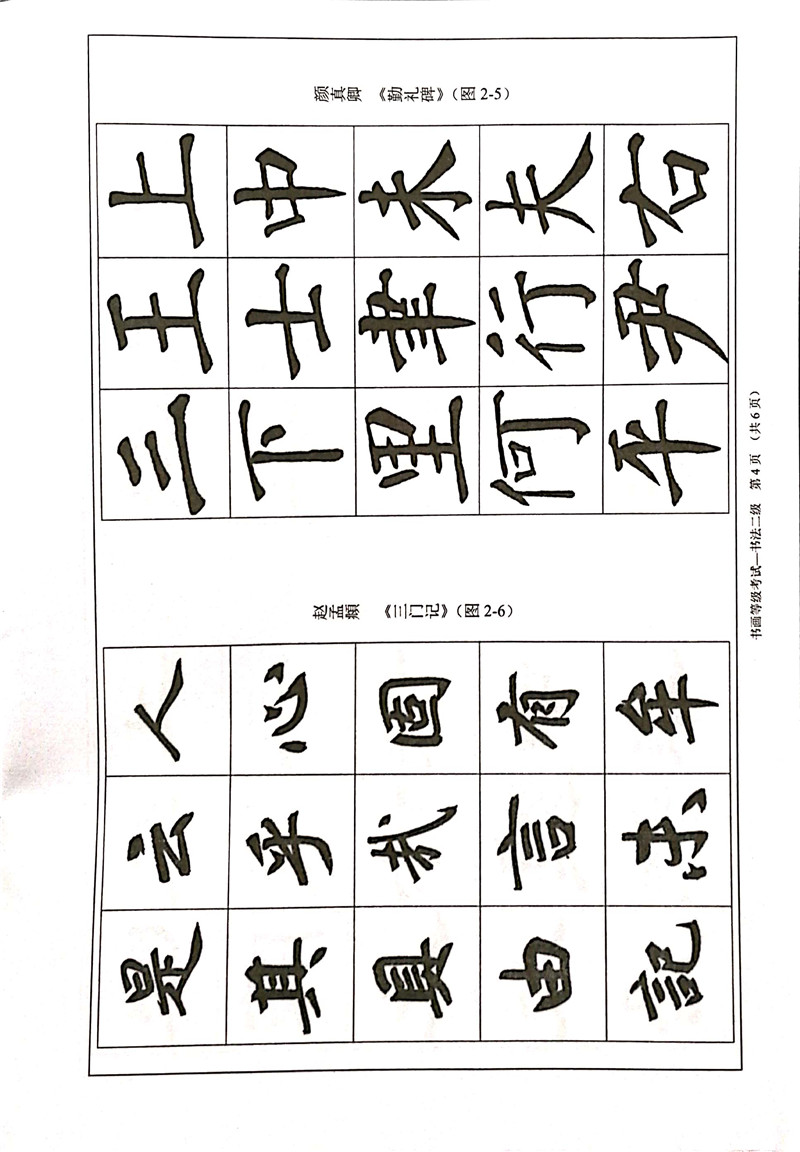 颜真卿 《勤礼碑》(图 2-5)
上中未夫石
王士聿行尹
三下里何平
赵孟頫 《三门记》(图 2-6)
人心有年
云乎言
是其具由記
书画等级考试—书法二级 第 4 页 （共 6 页）